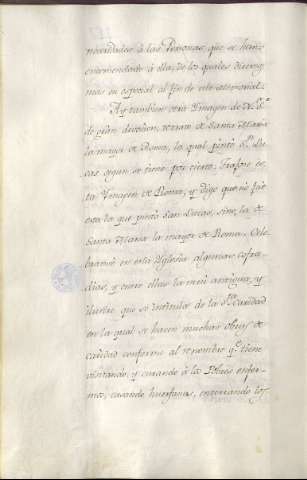 necesidades à las Personas, que se han
encomendado à ella, de los quales diremos
mas en especial al fin de este memorial.
Ay tambien otra Ymagen de N. S.ª
de gran devocion, retrato de Santa Maria
la mayor de Roma, la qual pintò S.n Lu-
cas segun se tiene por cierto. Traxose es-
ta Ymagen de Roma, y digo que no fue
esta la que pintò San Lucas, sino, la de
Santa Maria la mayor de Roma. Cele-
branse en esta Yglesia algunas cofra-
dias, y entre ellas la mui antigua, y
ilustre que se intitula de la S.ta Caridad
en la qual se hacen muchas obras de
caridad conforme al renombre q.e tiene
visitando, y curando à los Pobres enfer-
mos, casando huerfanas, enterrando los